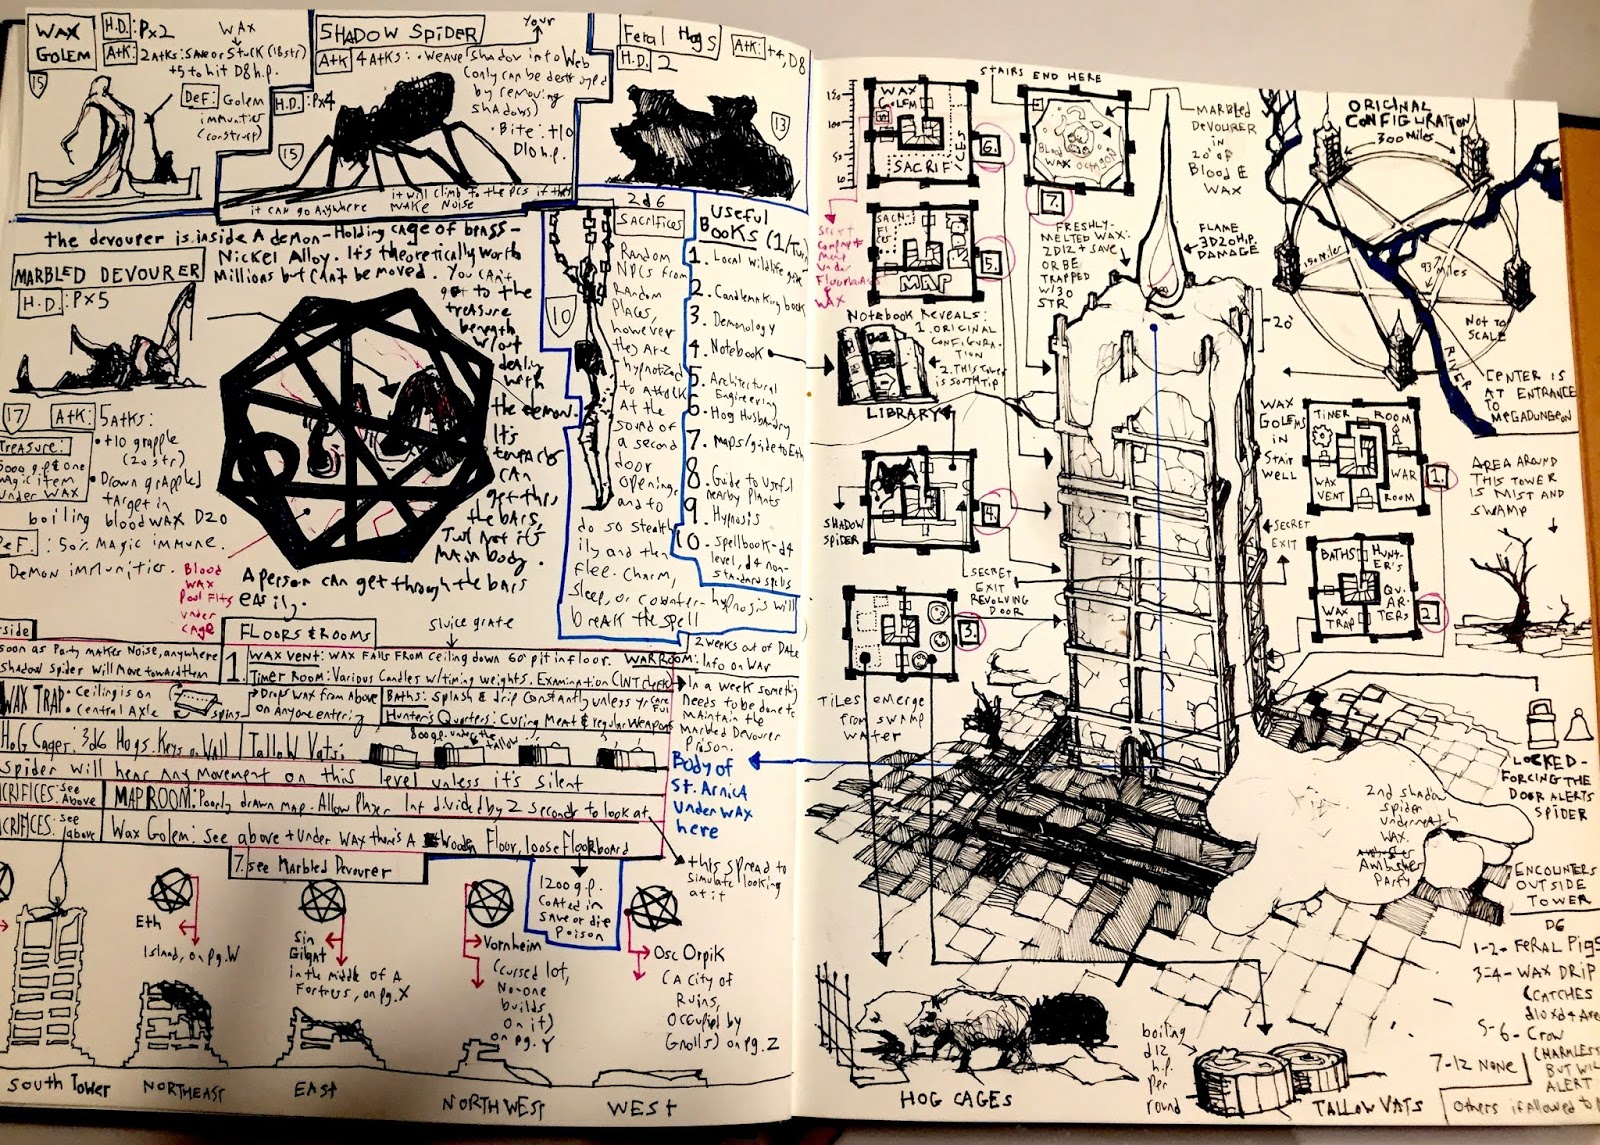 WAX
GOLEM
H.D.: Px2
WAX
Atk: 2 atks: Save or Stuck (18 str)
+5 to hit D8 h.p.
15
Def: Golem
immunities
(construct)
SHADOW SPIDER
Your
Atk 4 atks: • Weave shadow into Web
(only can be destroyed
by removing
shadows)
H.D.: Px4
• Bite: +10
D10 h.p.
15
it can go anywhere
it will climb to the PCs if they
MAKE NOISE
Feral Hogs
H.D. 2
Atk: +4, D8
13
the devourer is inside A demon-Holding cage of brass-
Nickel Alloy. It's theoretically worth
Millions but can't be moved. You can't
get to the
treasure
beneath
w/out
dealing
with
the demon.
It's
tentacles
can
get thru
the bars,
Just not it's
Main body.
A person can get through the bars
easily.
MARBLED DEVOURER
H.D.: Px5
17
Atk: 5 atks:
• +10 grapple
(20 str)
• Drown grappled
target in
boiling blood wax D20
Treasure:
magic item
under wax
Def.: 50% magic immune.
Demon immunities.
Blood
Wax
Pool fits
under
cage
2d6
Sacrifices
10
Random
NPCs from
Random
Places,
however
they are
hypnotized
to attack
At the
sound of
a second
door
opening
and to
do so stealth
ily and then
flee. Charm,
sleep, or counter-hypnosis will
break the spell
Useful
Books (1/Turn)
1. Local Wildlife
2. Candlemaking book
3. Demonology
4. Notebook
5. Architectural
Engineering
6. Hog Husbandry
7. Maps/guide to Eth
8. Guide to Useful
nearby Plants
9. Hypnosis
10. Spellbook-d4
level, d4 non-
standard spells
FLOORS & ROOMS
sluice grate
soon as Party makes Noise, anywhere
shadow spider will move toward them
1. WAX VENT: WAX FALLS FROM ceiling down 60' pit in floor. WAR ROOM: Info on War
2 weeks out of Date
Timer Room: Various Candles w/timing weights. Examination (INT check)
In a week something
needs to be done to
maintain the
Marbled Devourer
Prison.
WAX TRAP • Ceiling is on
central Axle
spins
Drops wax from above
on Anyone entering
Baths: Splash & drip Constantly unless yr careful
Hunter's Quarters: Curing Meat & regular Weapons
Hog Cages: 3d6 Hogs. Keys on Wall
Tallow Vats:
800 g.p. under the
tallow
Spider will hear Any Movement on this level unless it's silent
SACRIFICES: see
Above
MAP ROOM: Poorly drawn map. Allow Player Int divided by 2 seconds to look at
this spread to
simulate looking
at it
SACRIFICES: see
above
Wax Golem: see above + under wax there's A Wooden Floor, loose floorboard
7. see Marbled Devourer
1200 g.p.
coated in
save or die
poison
Body of
St. Arnica
under wax
here
South Tower
Eth
Island, on pg. W
NORTHEAST
Sin
Gilgnt
in the middle of a
Fortress, on pg. X
EAST
Vornheim
(cursed lot,
No-one
builds
on it)
on pg. Y
NORTHWEST
Osc Orpik
(A city of
Ruins,
Occupied by
Gnolls) on pg. Z
WEST
100
50
10
WAX
GOLEM
SACRIFICES
6.
Secret
Compartment
under
Floorboards
WAX
SACRIFICES
MAP
5.
STAIRS END HERE
Blood
WAX OCTAGON
7.
MARBLED
DEVOURER
IN
20' OF
Blood &
WAX
FRESHLY-
MELTED WAX:
2D12 + SAVE
OR BE
TRAPPED
W/30
STR
FLAME
3D20 H.P.
DAMAGE
20'
Notebook Reveals:
1. ORIGINAL
CONFIGURATION
2. THIS TOWER
IS SOUTH TIP
LIBRARY
SHADOW
SPIDER
4.
SECRET
EXIT
REVOLVING
DOOR
3.
TILES EMERGE
FROM SWAMP
WATER
ORIGINAL
CONFIGURATION
300 MILES
150 miles
93 MILES
NOT TO
SCALE
RIVER
CENTER IS
AT ENTRANCE
TO
MEGADUNGEON
WAX
GOLEMS
IN
STAIR
WELL
TIMER ROOM
WAX
VENT
WAR
ROOM
1.
SECRET
EXIT
BATHS
HUNTER'S
QUARTERS
WAX
TRAP
2.
AREA AROUND
THIS TOWER
IS MIST AND
SWAMP
LOCKED-
FORCING THE
DOOR ALERTS
SPIDER
2nd shadow
spider
underneath
wax.
Ambushes
Party
ENCOUNTERS
OUTSIDE
TOWER
D6
1-2- FERAL PIGS
3-4- WAX DRIP
(CATCHES
5-6- Crow
(HARMLESS
BUT WILL
ALERT
7-12 NONE
Others if allowed to
HOG CAGES
boiling
d12
h.p.
per
round
TALLOW VATS